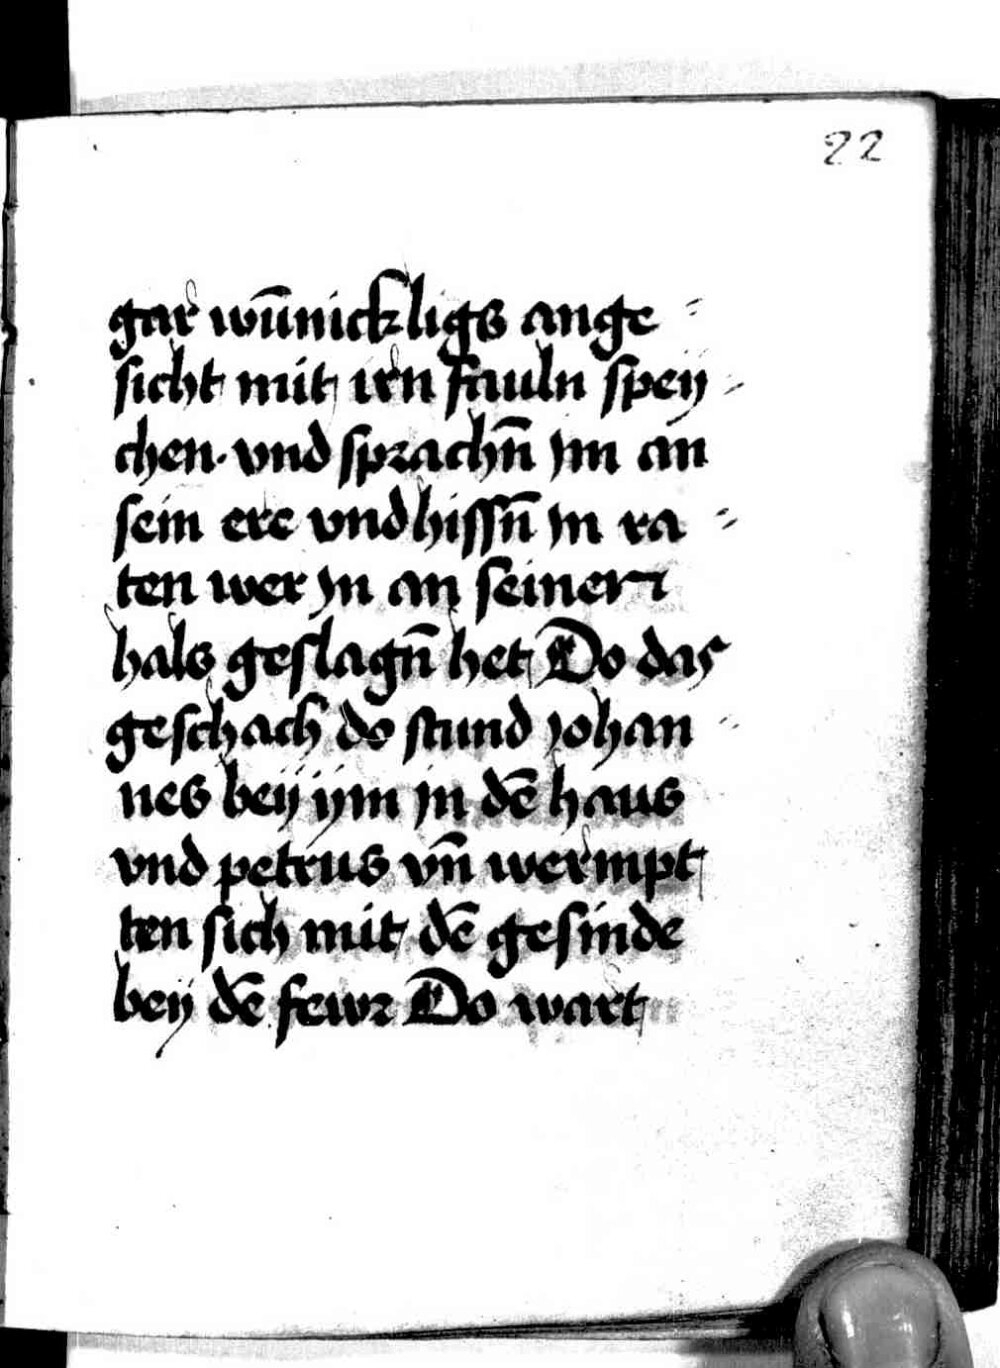 22
gar wūnickligs ange⸗
sicht mit irn fauln speÿ⸗
chen· vnd sprachn̄ ym an
sein ere vnd hissn̄ yn ra⸗
ten wer yn an seinen
hals geslagn̄ het Do das
geschach do stund yohan⸗
nes beÿ ÿm jn dē haus
vnd petrus vn̄ wermpt
ten sich mit dē gesinde
beÿ dē fewr Do wart